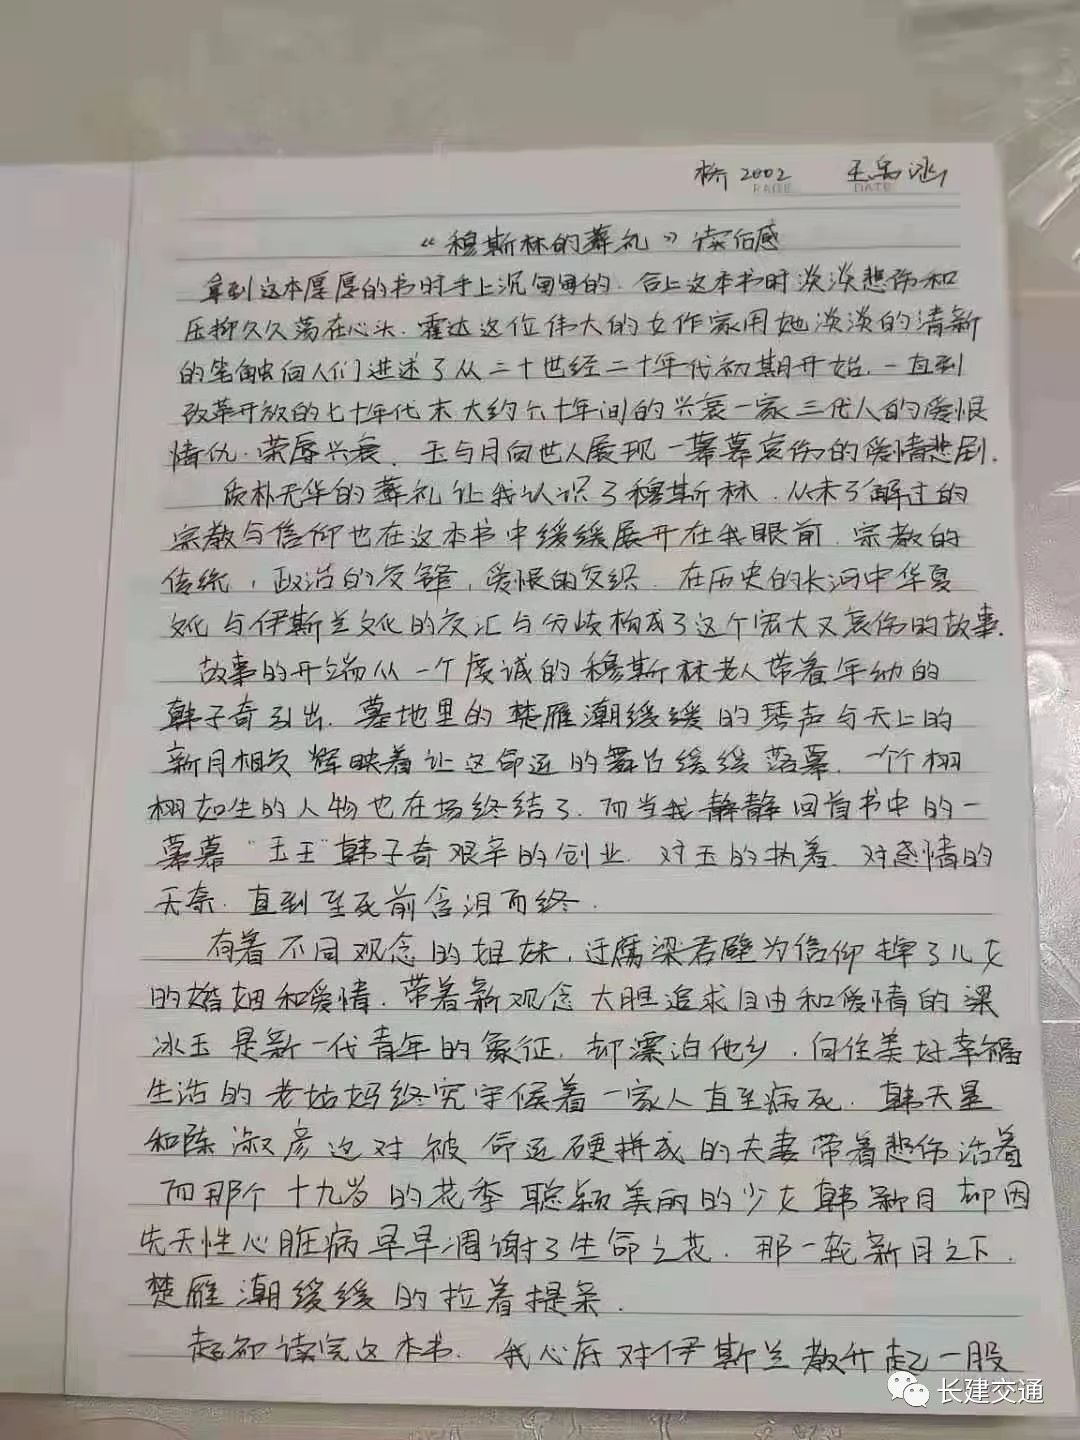 桥2002 王禹
PAGE DATE
“穆斯林的葬礼》读后感
拿到这本厚厚的书时手上沉甸甸的.合上这本书时淡淡悲伤和
压抑久久荡在心头.霍达这位伟大的女作家用她淡淡的清新
的笔触向人们讲述了从二十世经二十年代初期开始.一直到
改革开放的七十年代末大约六十年间的兴衰一家三代人的爱恨
情仇.荣辱兴衰.玉与月向世人展现一幕幕哀伤的爱情悲剧.
质朴无华的葬礼让我认识了穆斯林.从未了解过的
宗教与信仰也在这本书中缓缓展开在我眼前.宗教的
传统,政治的交锋,爱恨的交织.在历史的长河中华夏
文化与伊斯兰文化的交汇与分歧构成了这个宏大又哀伤的故事.
故事的开端从一个虔诚的穆斯林老人带着年幼的
韩子奇引出.墓地里的楚雁潮缓缓的琴声与天上的
新月相交辉映着让这命运的舞台缓缓落幕.一个个栩
栩如生的人物也在场终结了.而当我静静回首书中的一
幕幕“玉王”韩子奇艰辛的创业.对玉的执着.对感情的
无奈.直到至死前含泪而终.
有着不同观念的姐妹,迂腐梁君壁为信仰掉了儿女
的婚姻和爱情.带着新观念大胆追求自由和爱情的梁
冰玉是新一代青年的象征.却漂泊他乡.向往美好幸福
生活的老姑妈终究守候着一家人直至病死.韩天星
和陈淑彦这对被命运硬拼成的夫妻带着悲伤活着
而那个十九岁的花季聪颖美丽的少女韩新月却因
先天性心脏病早早凋谢了生命之花.那一轮新月之下.
楚雁潮缓缓的拉着提琴.
起初读完这本书.我心底对伊斯兰教升起一股
长建交通